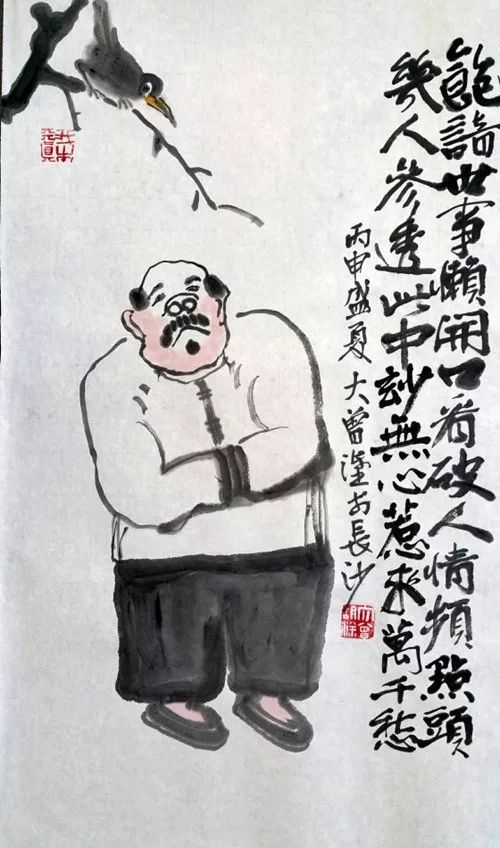 飽諳世事懶開口看破人情頻點頭
幾人參透此中玅無心惹來萬千愁
丙申盛夏大曾塗於長沙